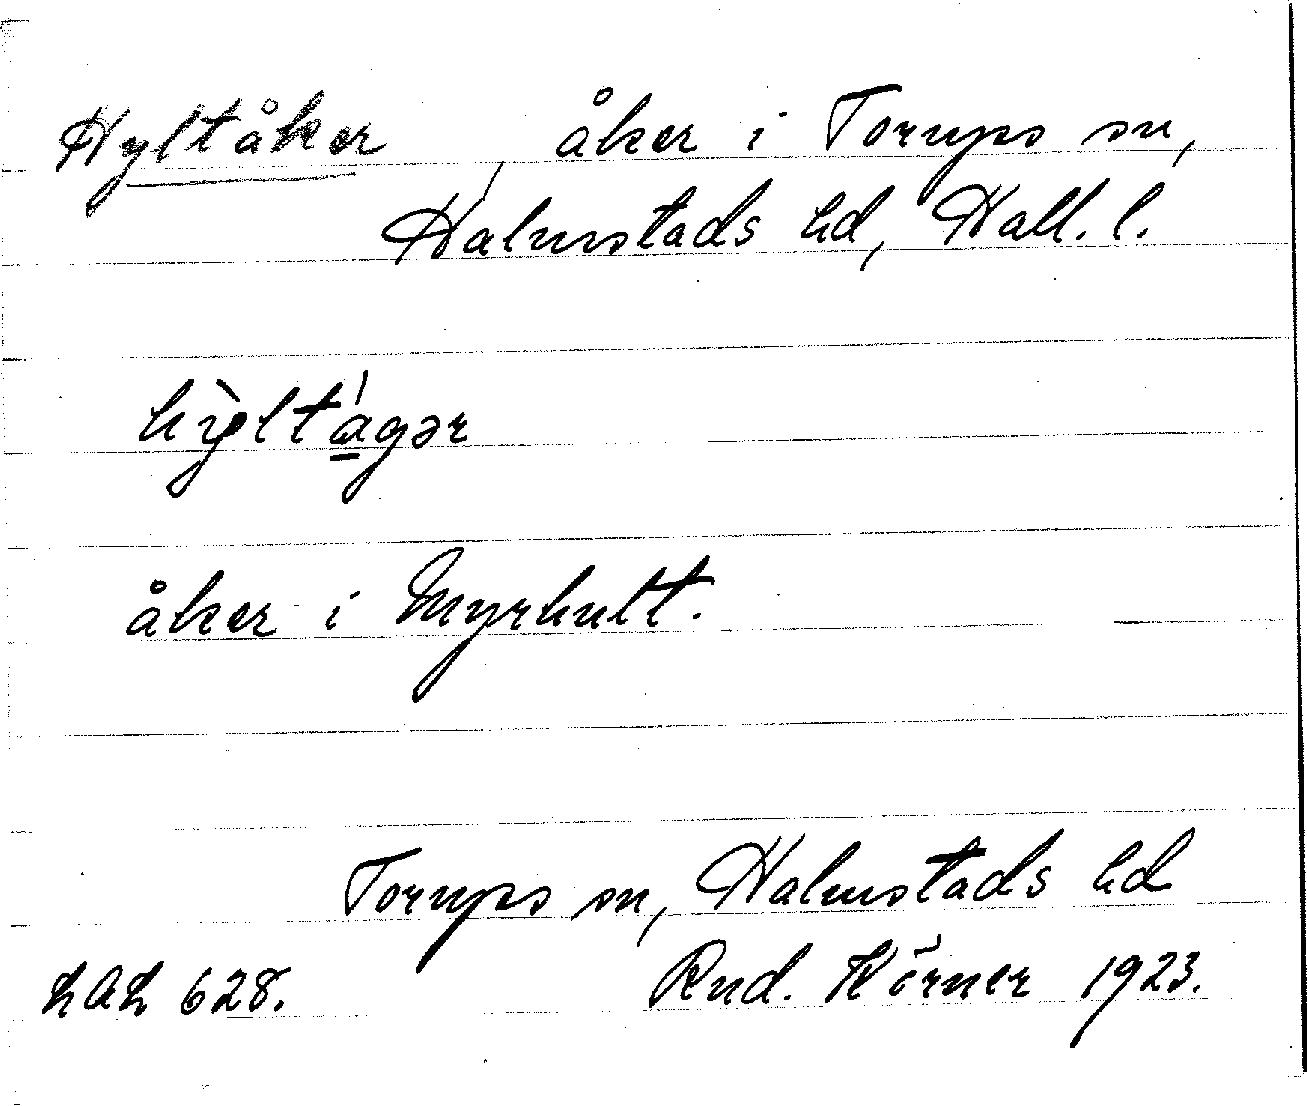 Hyltåker, åker i Torups sn,
Halmstads hd, Hall. l.
hỳlta̲̍gər
åker i Myrhult.
Torups sn, Halmstads hd
LAL 628. Rnd. Körner 1923.